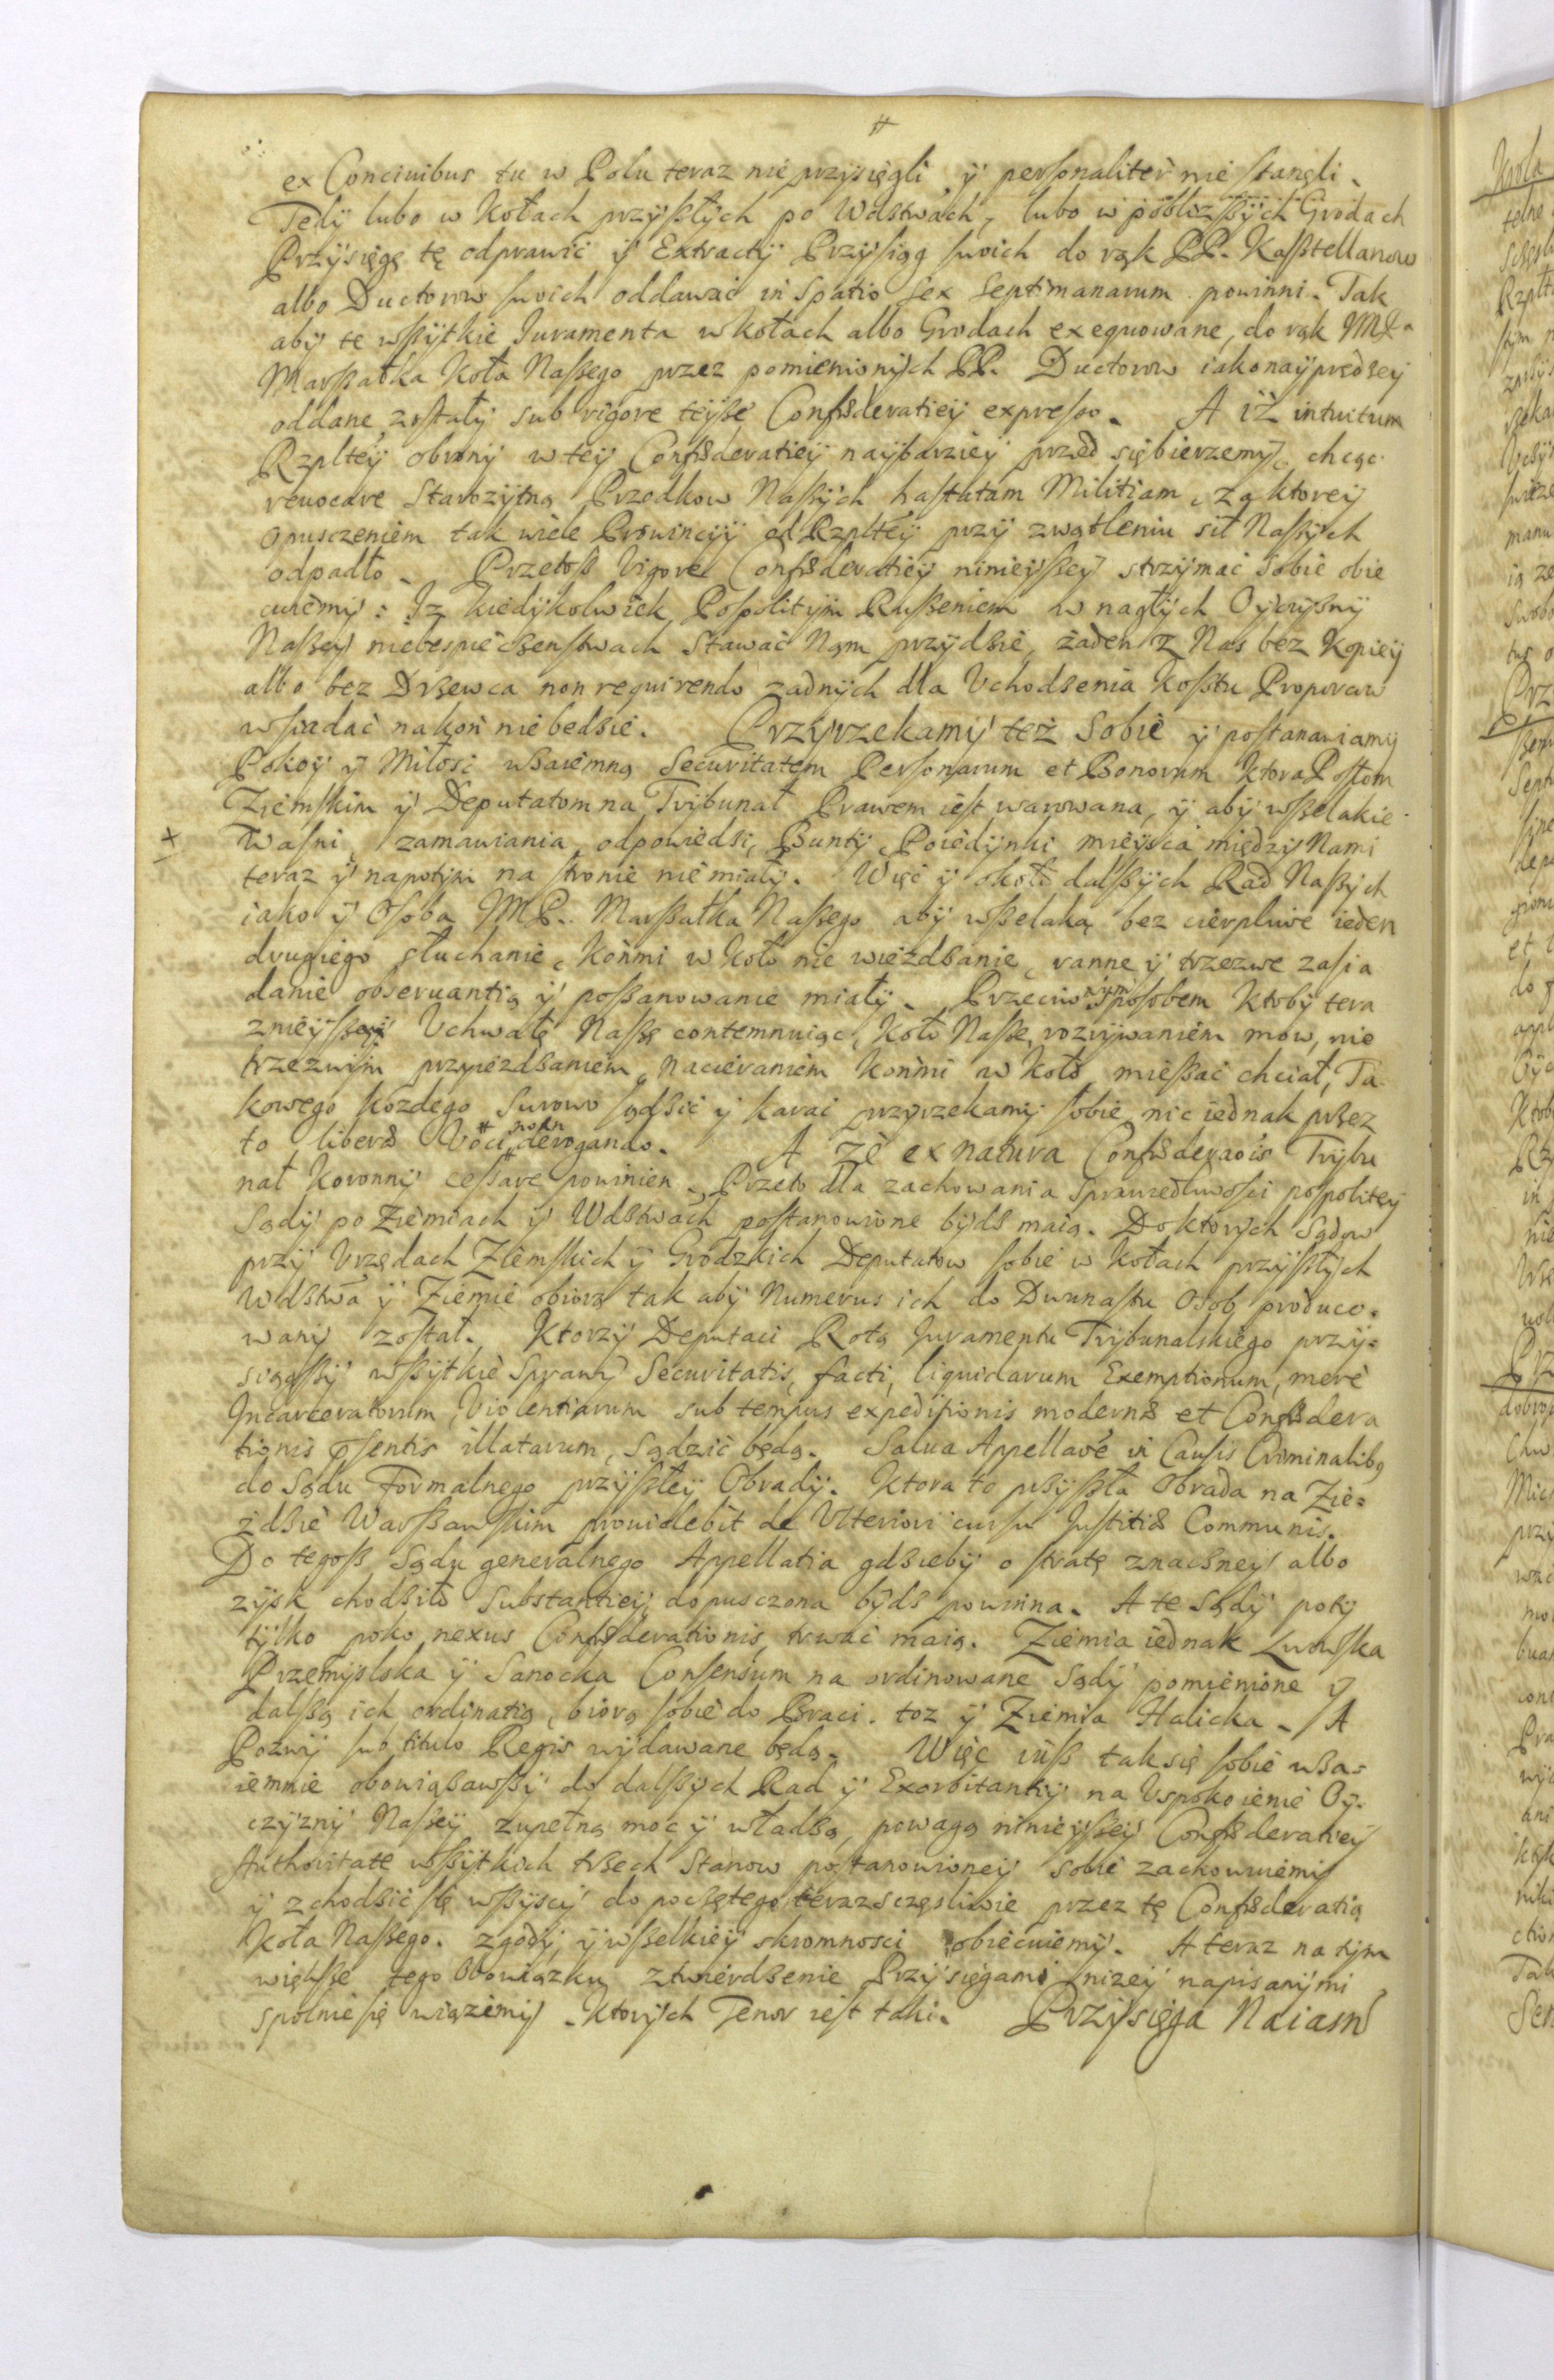 ex Conciuibus tu w Polu teraz nie przysięgli, ÿ personaliter nie stanęli.
Tedÿ lubo w Kołach przÿszłÿch po Wdstwach, lubo w pobliższÿch Grodach
Przÿsięgę tę odprawić ÿ Extractÿ Przÿsiąg swoich do rąk PP. Kasztellanow
albo Ductorow swoich oddawać in Spatio sex Septimanarum powinni. Tak
abÿ te wszÿtkie Juramenta w kołach albo Grodach exequowane, do rąk
Marszałka Koła Naszego przez pomienionÿch PP. Ductorow iako naÿprędzeÿ
oddane zostałÿ sub rigore teÿże Confæderatieÿ expresso. A iż intuitum
Rzplteÿ obronÿ w teÿ Confæderatieÿ naÿbarzieÿ przed się bierzemÿ, chcąc
reuocare Starożÿtną Przodkow Naszÿch hastatam Militiam, za ktoreÿ
opusczeniem tak wiele Prowinciÿ od Rzplteÿ przÿ zwątleniu sił Naszÿch
odpadło. Przetosz Vigore Confæderatieÿ ninieÿszeÿ strzÿmać sobie obie
cuiemÿ: Iz kiedÿkolwiek Pospolitÿm Ruszeniem w nagłÿch Oÿczÿznÿ
Naszeÿ niebespieczenstwach Stawać Nam przÿdzie, żaden z Nas bez Kopieÿ
albo bez Drzewca non requirendo żadnÿch dla Vchodzenia Kosztu Proporcow
wsiadać na koń nie będzie. Przÿrzekamÿ też Sobie ÿ postanawiamÿ
Pokoÿ ÿ Miłość wzaiemną Securitatem Personarum et Bonorum Ktora Posłom
Ziemskim ÿ Deputatom na Trÿbunał Prawem iest warowana, ÿ abÿ wszelakie
Waśni, zamawiania, odpowiedzi, Buntÿ, Poiedÿnki mieÿsca międzÿ Nami
teraz ÿ napotÿm na stronie nie miałÿ. Więc ÿ około dalszÿch Rad Naszÿch
iako ÿ Osoba MP. Marszałka Naszego abÿ wszelaką bez cierpliwe ieden
drugiego słuchanie, Końmi w Koło nie wieżdżanie, ranne ÿ trzeźwe zasia
danie obseruantią ÿ poszanowanie miałÿ. Przeciwnÿm Sposobem Ktobÿ tera
znieÿszą Vchwałę Naszę contemnuiąc, Koło Nasze, rozrÿwaniem mow, nie
trzeźwÿm przÿieżdżaniem, nacieraniem Końmi w Koło mieszać chciał, Ta
kowego kożdego surowo sądzić ÿ karać przÿrzekamÿ sobie, nic iednak przez
to liberæ Voci non derogando. A że ex natura Confæderaõis Trÿbu
nał Koronnÿ cessare powinien. Przeto dla zachowania Sprawiedliwości pospoliteÿ
Sądÿ po Ziemiach ÿ Wdstwach postanowione bÿdź maią. Do ktorÿch Sądow
przÿ Vrzędach Ziemskich ÿ Grodzkich Deputatow sobie w Kołach przÿszłÿch
Wdstwa ÿ Ziemie obiorą tak abÿ Numerus ich do Dwunastu Osob produco-
wanÿ został. Ktorzÿ Deputaci Rotą Juramentu Trÿbunalskiego przÿ-
siągszÿ wszÿtkie Sprawÿ Securitatis, facti, liquidarum Exemptionum, mere
Incarceratorum, Violentiarum sub tempus expeditionis modernæ et Confædera
tionis pſentis illatarum, sądzić będą. Salua Appellaõe in Causis Criminalibq
do Sądu Formalnego przÿszłeÿ Obradÿ. Ktora to przÿszła obrada na Zie-
ździe Warszawskim prouidebit de Vlteriori cursu Justitiæ Communis.
Do tegosz Sądu generalnego Appellatia gdziebÿ o stratę znaczneÿ albo
zÿsk chodziło Substantieÿ dopusczona bÿdź powinna. A te Sądÿ potÿ
tÿlko poko nexus Confæderationis, trwać maią. Ziemia iednak Lwowska
Przemÿslska ÿ Sanocka Consensum na ordinowane Sądÿ pomienione ÿ
dalszą ich ordinatią, biorą sobie do Braci. toż ÿ Ziemia Halicka. A
Pozwÿ sub titulo Regis wÿdawane będą. Więc iusz tak się sobie wza-
iemnie obowiązawszÿ do dalszÿch Rad ÿ Exorbitantiÿ na Vspokoienie Oÿ-
czÿznÿ Naszeÿ zupełną moc ÿ władzą, powagą ninieÿszeÿ Confæderatieÿ
Authoritate wszÿtkich trzech Stanow postanowioneÿ sobie zachowuiemÿ
ÿ zchodzić się wszÿscÿ do poczętego teraz sczęśliwie przez tę Confæderatią
Koła Naszego. zgodÿ, ÿ wszelkieÿ skromnosci obiecuiemÿ. A teraz na tÿm
większe tego Obowiązku ztwierdzenie Przÿsięgami niżeÿ napisanÿmi
spolnie się wiążemÿ. Ktorÿch Tenor iest taki. Przÿsięga Naiasn